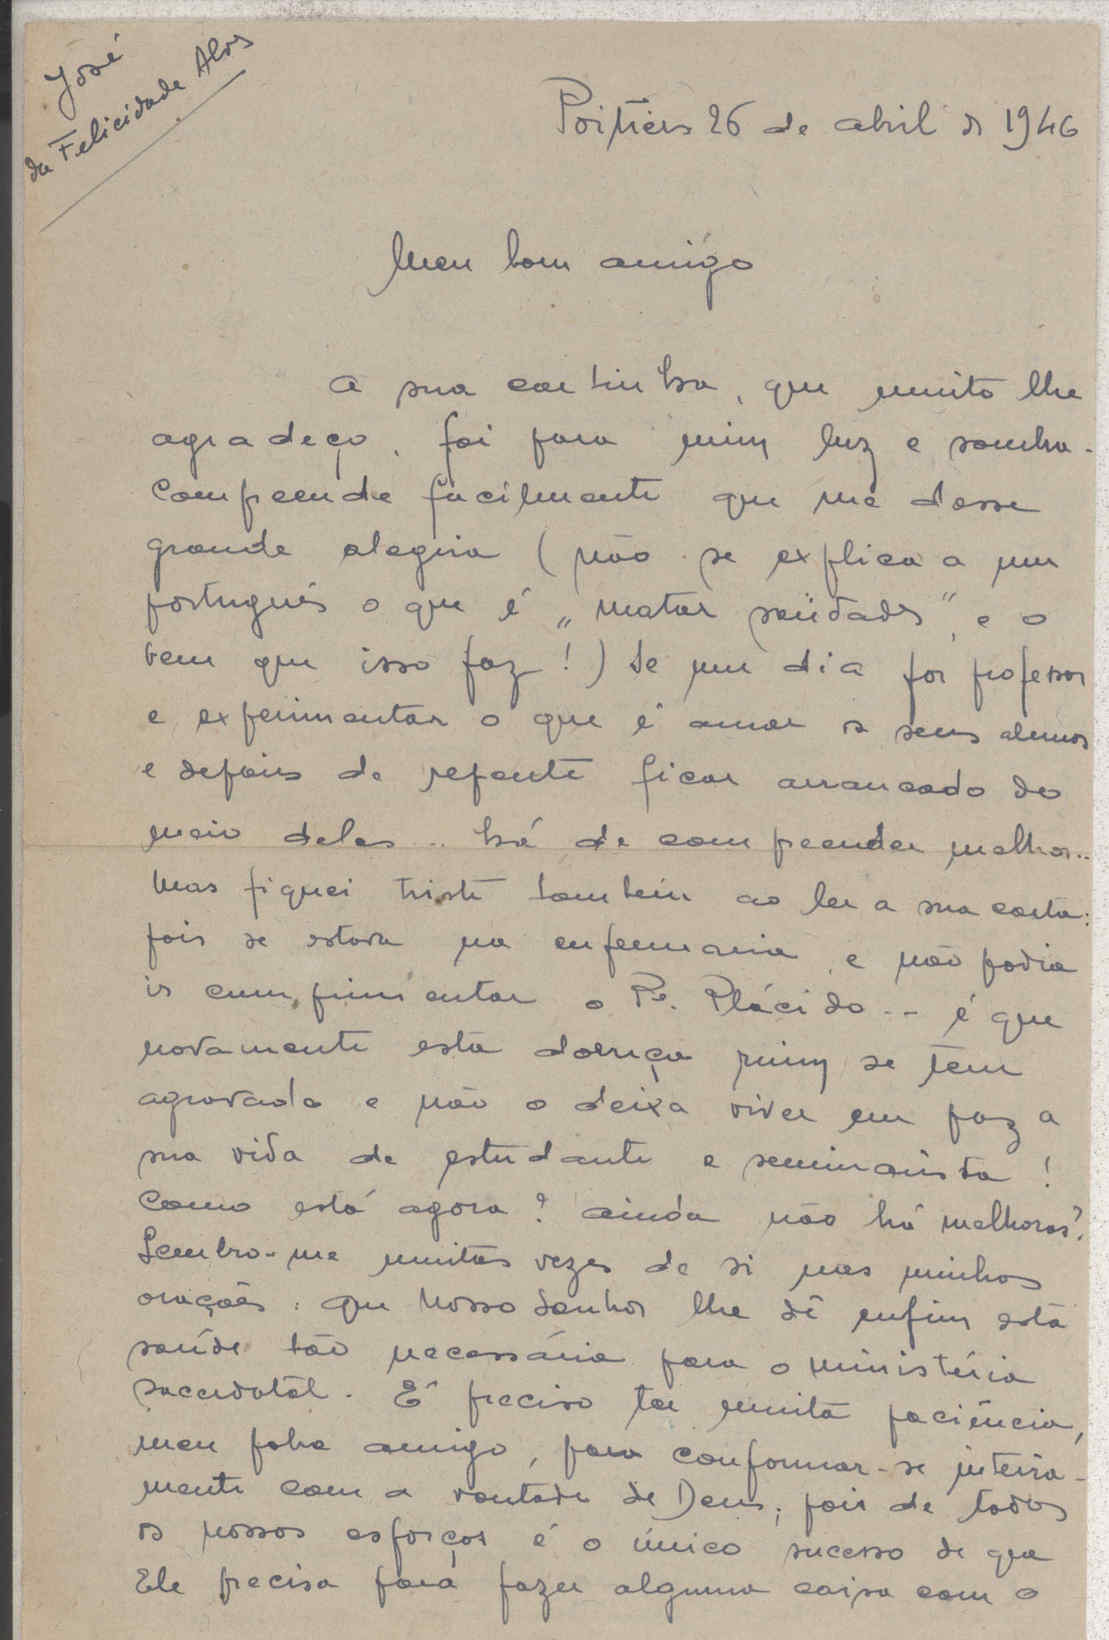 José
da Felicidade Alves
Poitiers 26 de abril de 1946
Meu bom amigo
A sua cartinha, que muito lhe
agradeço, foi para mim luz e sombra.
Compreende facilmente que me desse
grande alegria (não se explica a um
português o que é „matar saüdades", e o
bem que isso faz!) Se um dia for professor
e experimentar o que é amar os seus alunos
e depois de repente ficar arrancado do
meio deles... há de compreender melhor...
Mas fiquei triste também ao ler a sua carta:
pois se estava na enfermaria e não podia
ir cumprimentar o Pe. Plácido... é que
novamente esta doença ruim se tem
agravado e não o deixa viver em paz a
sua vida de estudante e seminarista!
Como está agora? ainda não há melhoras?
Lembro-me muitas vezes de si nas minhas
orações: que Nosso Senhor lhe dê enfim esta
saúde tão necessária para o ministério
sacerdotal. É preciso ter muita paciência,
meu pobre amigo, para conformar-se inteira-
mente com a vontade de Deus; pois de todos
os nossos esforços é o único sucesso de que
Ele precisa para fazer alguma coisa com o